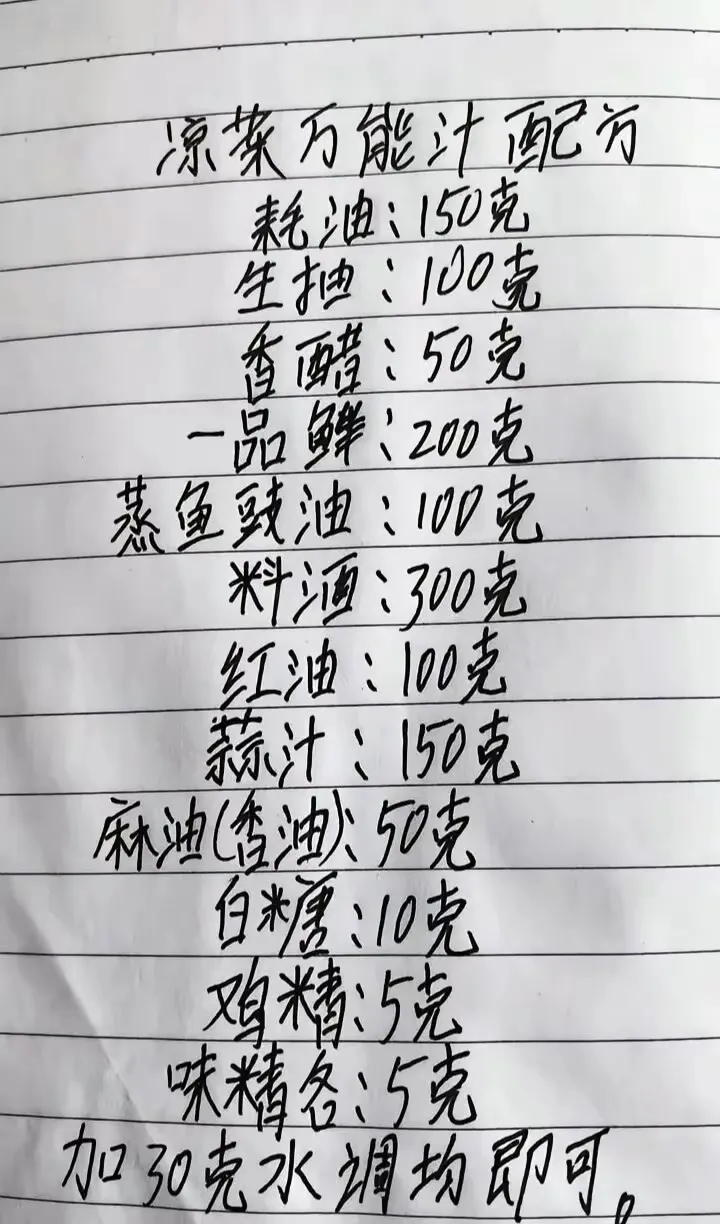 凉菜万能汁配方
耗油:150克
生抽:100克
香醋:50克
一品鲜:200克
蒸鱼豉油:100克
料酒:300克
红油:100克
蒜汁:150克
麻油(香油):50克
白糖:10克
鸡精:5克
味精各:5克
加30克水调均即可。